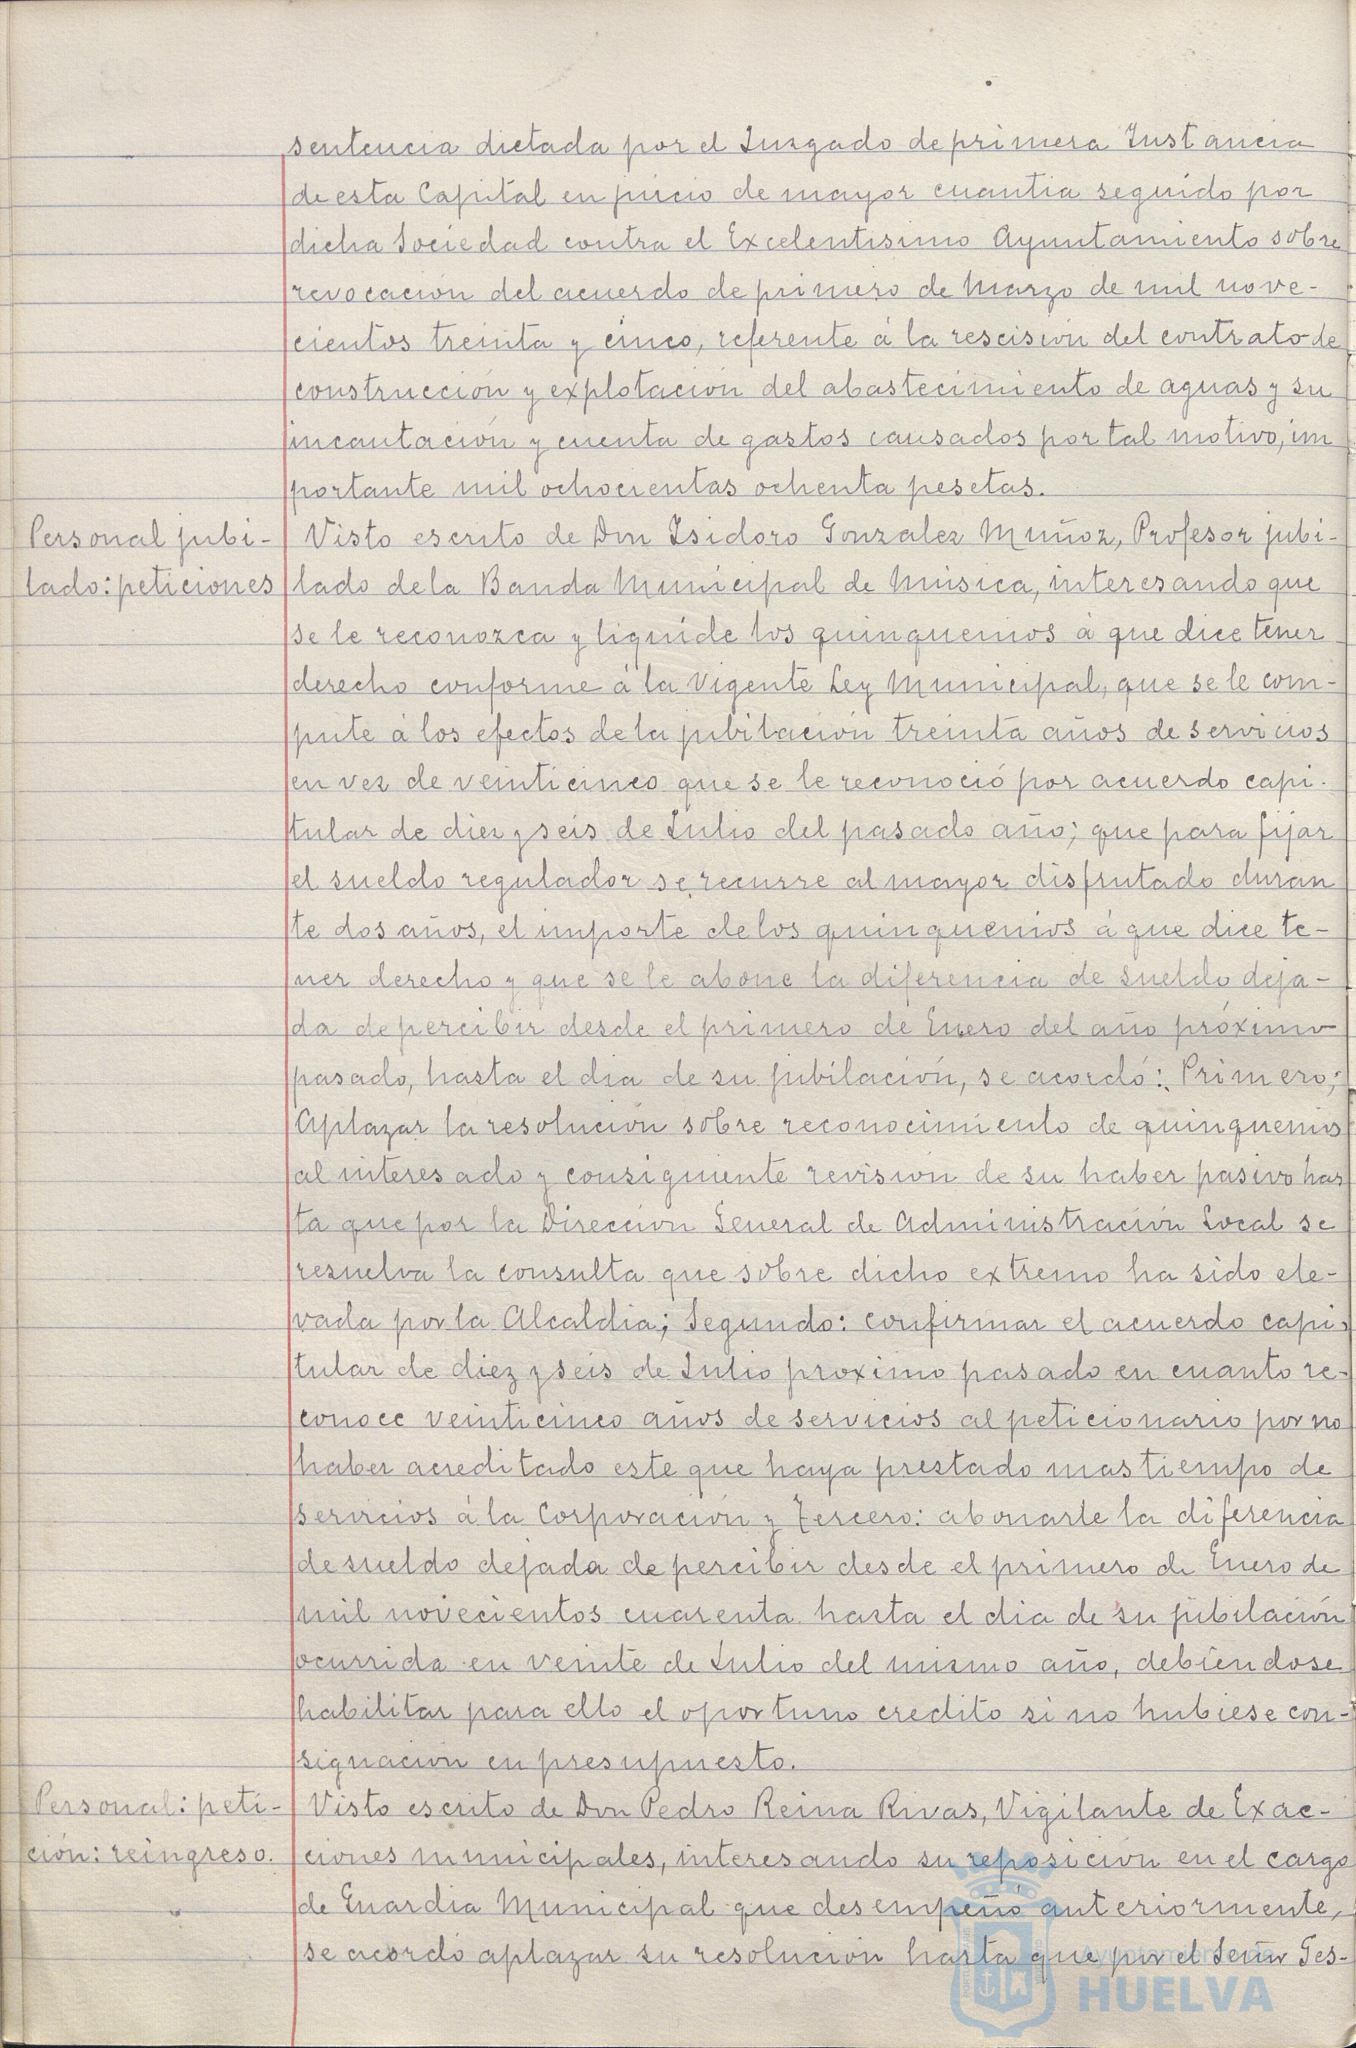 sentencia dictada por el Juzgado de primera Instancia
de esta Capital en juicio de mayor cuantia seguido por
dicha Sociedad contra el Excelentisimo Ayuntamiento sobre
revocación del acuerdo de primero de Marzo de mil nove-
cientos treinta y cinco, referente á la rescisión del contrato de
construcción y explotación del abastecimiento de aguas y su
incautación y cuenta de gastos causados por tal motivo, im
portante mil ochocientas ochenta pesetas.
Personal jubi-
lado: peticiones
Visto escrito de Don Isidoro Gonzalez Muñoz, Profesor jubi-
lado de la Banda Municipal de Música, interesando que
se le reconozca y liquide los quinquenios á que dice tener
derecho conforme á la vigente Ley Municipal, que se le com-
pute á los efectos de la jubilación treinta años de servicios
en vez de veinticinco que se le reconoció por acuerdo capi-
tular de diez y seis de Julio del pasado año; que para fijar
el sueldo regulador se recurre al mayor disfrutado duran
te dos años, el importe de los quinquenios á que dice te-
ner derecho y que se le abone la diferencia de sueldo deja-
da de percibir desde el primero de Enero del año próximo
pasado, hasta el dia de su jubilación, se acordó: Primero;
Aplazar la resolución sobre reconocimiento de quinquenios
al interesado y consiguiente revisión de su haber pasivo has
ta que por la Dirección General de Administración Local se
resuelva la consulta que sobre dicho extremo ha sido ele-
vada por la Alcaldia; Segundo: confirmar el acuerdo capi-
tular de diez y seis de Julio proximo pasado en cuanto re-
conoce veinticinco años de servicios al peticionario por no
haber acreditado este que haya prestado mas tiempo de
servicios á la Corporación y Tercero: abonarle la diferencia
de sueldo dejada de percibir desde el primero de Enero de
mil novecientos cuarenta hasta el dia de su jubilación
ocurrida en veinte de Julio del mismo año, debiendose
habilitar para ello el oportuno credito si no hubiese con-
signación en presupuesto.
Personal: peti-
ción: reingreso.
Visto escrito de Don Pedro Reina Rivas, Vigilante de Exac-
ciones municipales, interesando su reposición en el cargo
de Guardia Municipal que desempeñó anteriormente,
se acordó aplazar su resolución hasta que por el Señor Ges-
Ayuntamiento de
HUELVA